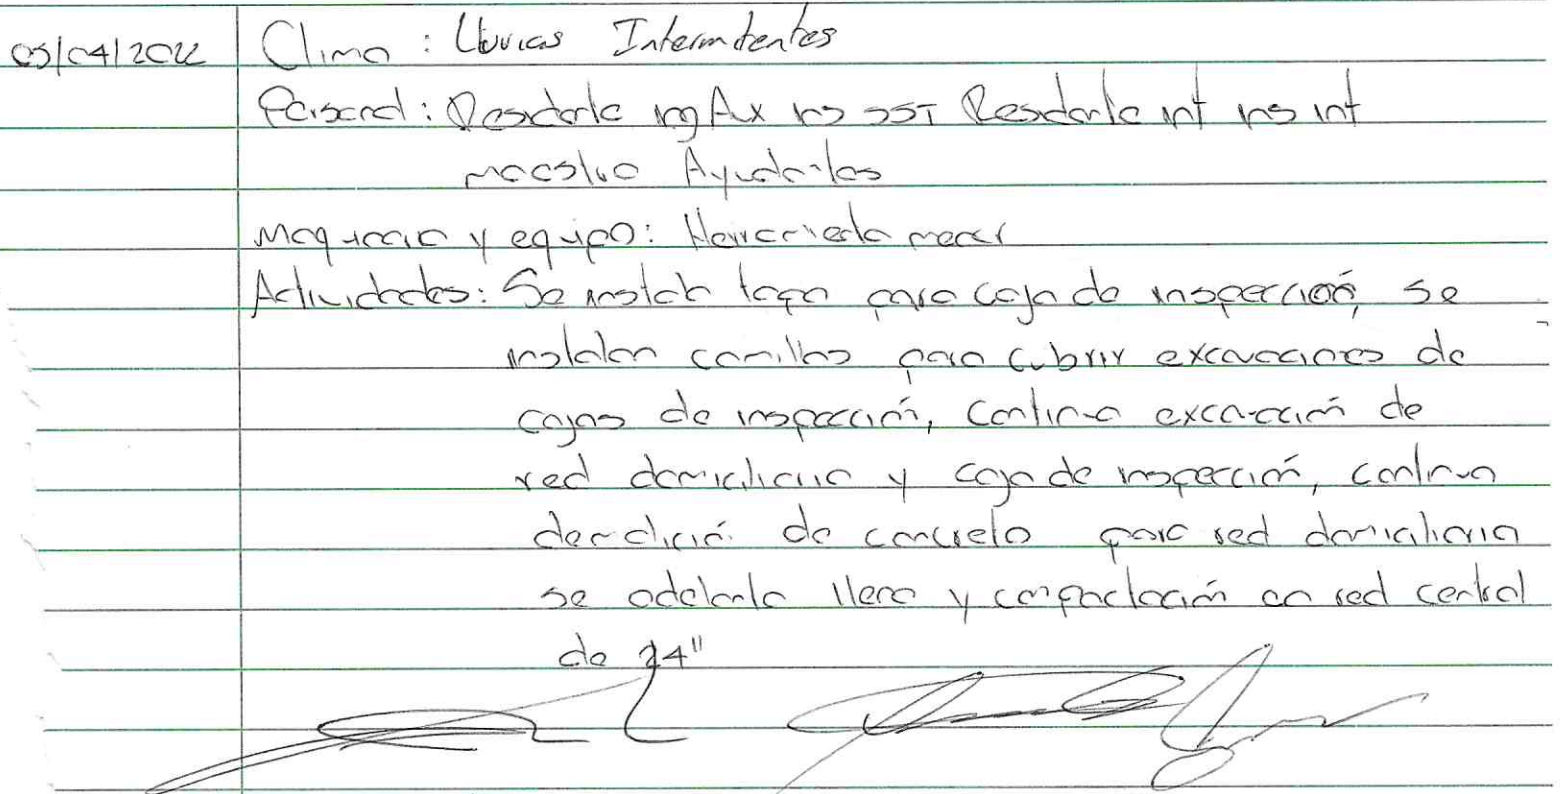 05/04/2022 Clima : Lluvias Intermitentes
Personal : Residente ing Aux ins SST Residente int ins int
maestro Ayudantes
Maquinaria y equipo: Herramienta menor
Actividades: Se instala tapa para caja de inspección, se
instalan camillas para cubrir excavaciones de
cajas de inspección, continua excavación de
red domiciliaria y caja de inspección, continua
demolición de concreto para red domiciliaria
se adelanta lleno y compactación en red central
de 24"